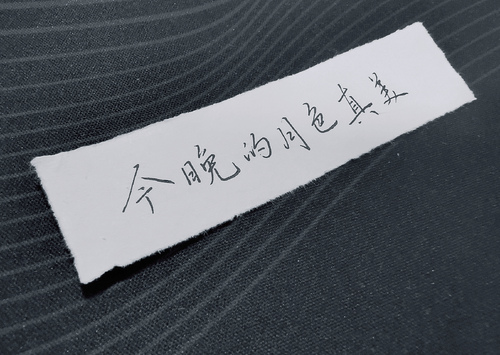 今晚的月色真美